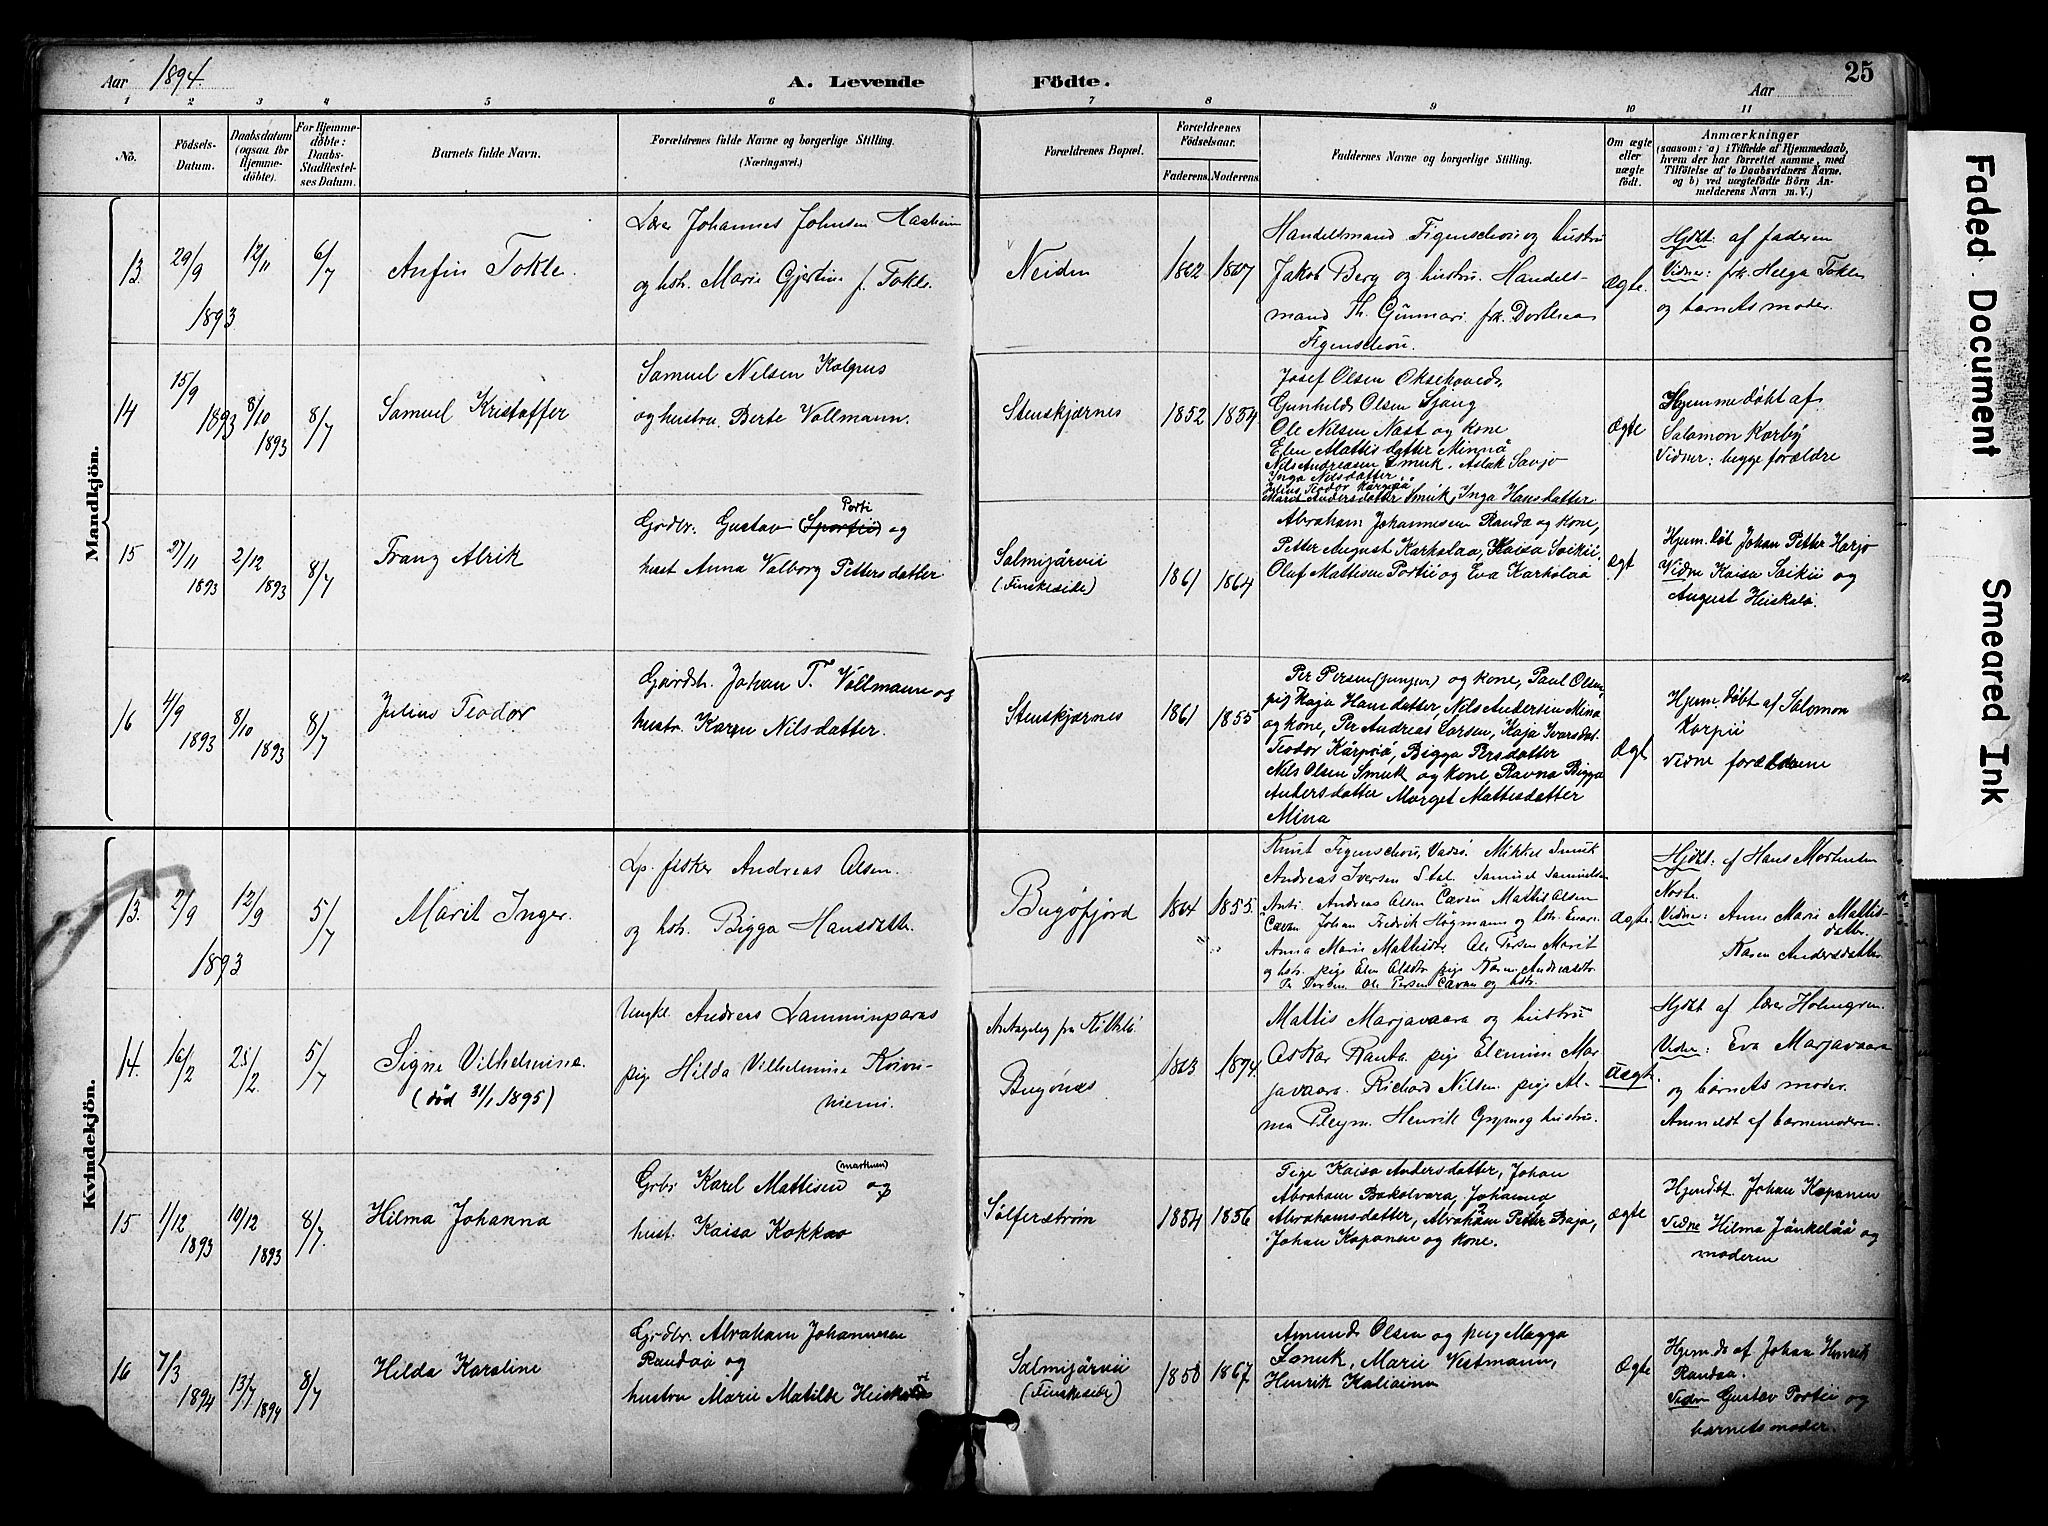 Aar 1894.
A. Levende Födte.
Aar
25
1 2 3 4 5 6 7 8 9 10 11
No.
Födsels-Datum.
Daabsdatum (ogsaa for Hjemme-döbte).
For Hjemme-döbte: Daabs-Stadfæstel-ses Datum.
Barnets fulde Navn.
Forældrenes fulde Navne og borgerlige Stilling.
(Næringsvei.)
Forældrenes Bopæl.
Forældrenes Födselsaar.
Faderens. Moderens.
Faddernes Navne og borgerlige Stilling.
Om ægte eller uægte födt.
Anmærkninger
(saasom: a) i Tilfælde af Hjemmedaab,
hvem der har forrettet samme, med
Tilföielse af to Daabsvidners Navne.
og b) ved uægtefödte Börn An-
melderens Navn m. V.)
Mandkjön.
13. 29/9 1893 12/11 6/7
Anfin Tokle.
Lærer Johannes Johnsen Aasheim
og hstr. Marie Gjertine f. Tokle.
Neiden
1862 1867
Handelsmand Figenschou og hustru
Jakob Berg og hustru. Handels-
mand Th. Gunnari. frk. Dorthea
Figenschou.
Ægte.
Hjdbt. af faderen
Vidner: frk. Helga Tokle
og barnets moder.
14 15/9 1893 8/10 1893 8/7
Samuel Kristoffer
Samuel Nilsen Kolpus
og hustru Berte Vollmann.
Stenskjærnes
1852 1854
Josef Olsen Oksehoved,
Gunhild Olsen Sjang
Ole Nilsen Næst og kone
Elen Mattisdatter Minnä
Nils Andreasen Smuk. Aslak Savjo
Inga Nilsdatter.
Julius Teodor Karpiä
Marit Andersdatter Smuk, Inga Hansdatter.
ægte
Hjemmedöbt af
Salomon Korby
Vidner: begge forældre
15 27/11 1893 2/12 1893 8/7
Franz Alrik
Grdbr. Gustav (Sportii) Porti og
hust Anna Valborg Pettersdatter
Salmijärvii
(Finskeside)
1861 1864
Abraham Johannesen Randa og kone,
Petter August Karkolaa, Kaisa Soikii,
Oluf Mattisen Portii og Eva Karkolaa
ægt
Hjem.döt Johan Petter Harjo
Vidne Kaisa Soikii og
August Heiskalo.
16 4/9 1893 8/10 1893 8/7
Julius Teodor
Gårdbr. Johan T. Vollmann og
hustr. Karen Nilsdatter.
Stenskjærnes
1861 1855
Per Persen (junger) og kone, Paul Olsen,
pig Kaja Hansdatter, Nils Andersen Mina
og kone, Per Andreas Larsen, Kaja Ivarsdat.
Teodor Kärpiö, Bigga Persdatter
Nils Olsen Smuk og kone, Ravna Bigga
Andersdatter Marget Mattisdatter
Mina
Ægt
Hjem.döbt af Salomon
Korpii
vidne forældrene
Kvindekjön.
13. 2/9 1893 12/9 5/7
Marit Inger.
Lp. fisker Andreas Olsen.
og hstr. Bigga Hansdatter
Bugöfjord
1864 1855.
Knut Figenschou, Vadsö. Mikkel Smuk
Andreas Iversen Stal. Samuel Samuelsen
Anti. Andreas Olsen Caven Mattis Olsen
Cavan Johan Fredrik Högmann og hstr. Eva
Anna Marie Mattisdtr Ole Persen Marit
og hstr. pige Elen Olsdtr pige Karen Andreasdtr.
Ole Persen Cavan og hstr.
Ægte
Hjdbt: af Hans Mortensen
Noste.
Vidner: Anne Marie Mattis-
datter.
Karen Andersdatter.
14. 16/2 25/2 5/7
Signe Vilhelmine
(död 31/1 1895)
Ungkl. Andreas Lamminparas
pige Hilda Vilhelmine Koivu-
niemi.
Antagelig fra Kittilä.
Bugönæs
1863 1894.
Mattis Marjavaara og hustru
Oskar Ranta. pige Elemine Mar-
javaara. Richard Nilsen. pige Al-
ma Pleym. Henrik og hustru.
Uægt.
Hjdbt af lærer Holmgren.
Vidner: Eva Marjavaara
og barnets moder.
Anmeldt af barnemoderen.
15 1/12 1893 10/12 1893 8/7
Hilma Johanna
Grbr Karel Mattisen (markuen) og
hust. Kaisa Kokkao
Sølferström
1854 1856
Pige Kaisa Andersdatter, Johan
Abraham Bakolvara, Johanna
Abrahamsdatter, Abraham Petter Baja,
Johan Kapanen og kone.
ægte
Hjemdbt. Johan Kapanen
vidne Hilma Jänkeläa og
moderen
16 7/3 1894 13/7 1894 8/7
Hilda Karoline
Grdbr Abraham Johannesen
Randaa og
hustru Marie Matilde Heiskal
Salmijärvii
(Finskeside)
1858 1867
Amund Olsen og pige Magga
Smuk, Marie Vestmann,
Henrik Kaliaina
Ægte
Hjem.d. af Johan Henrik
Randaa.
Vidn Gustav Portii og
barnets moder.
Faded Document
Smeared Ink